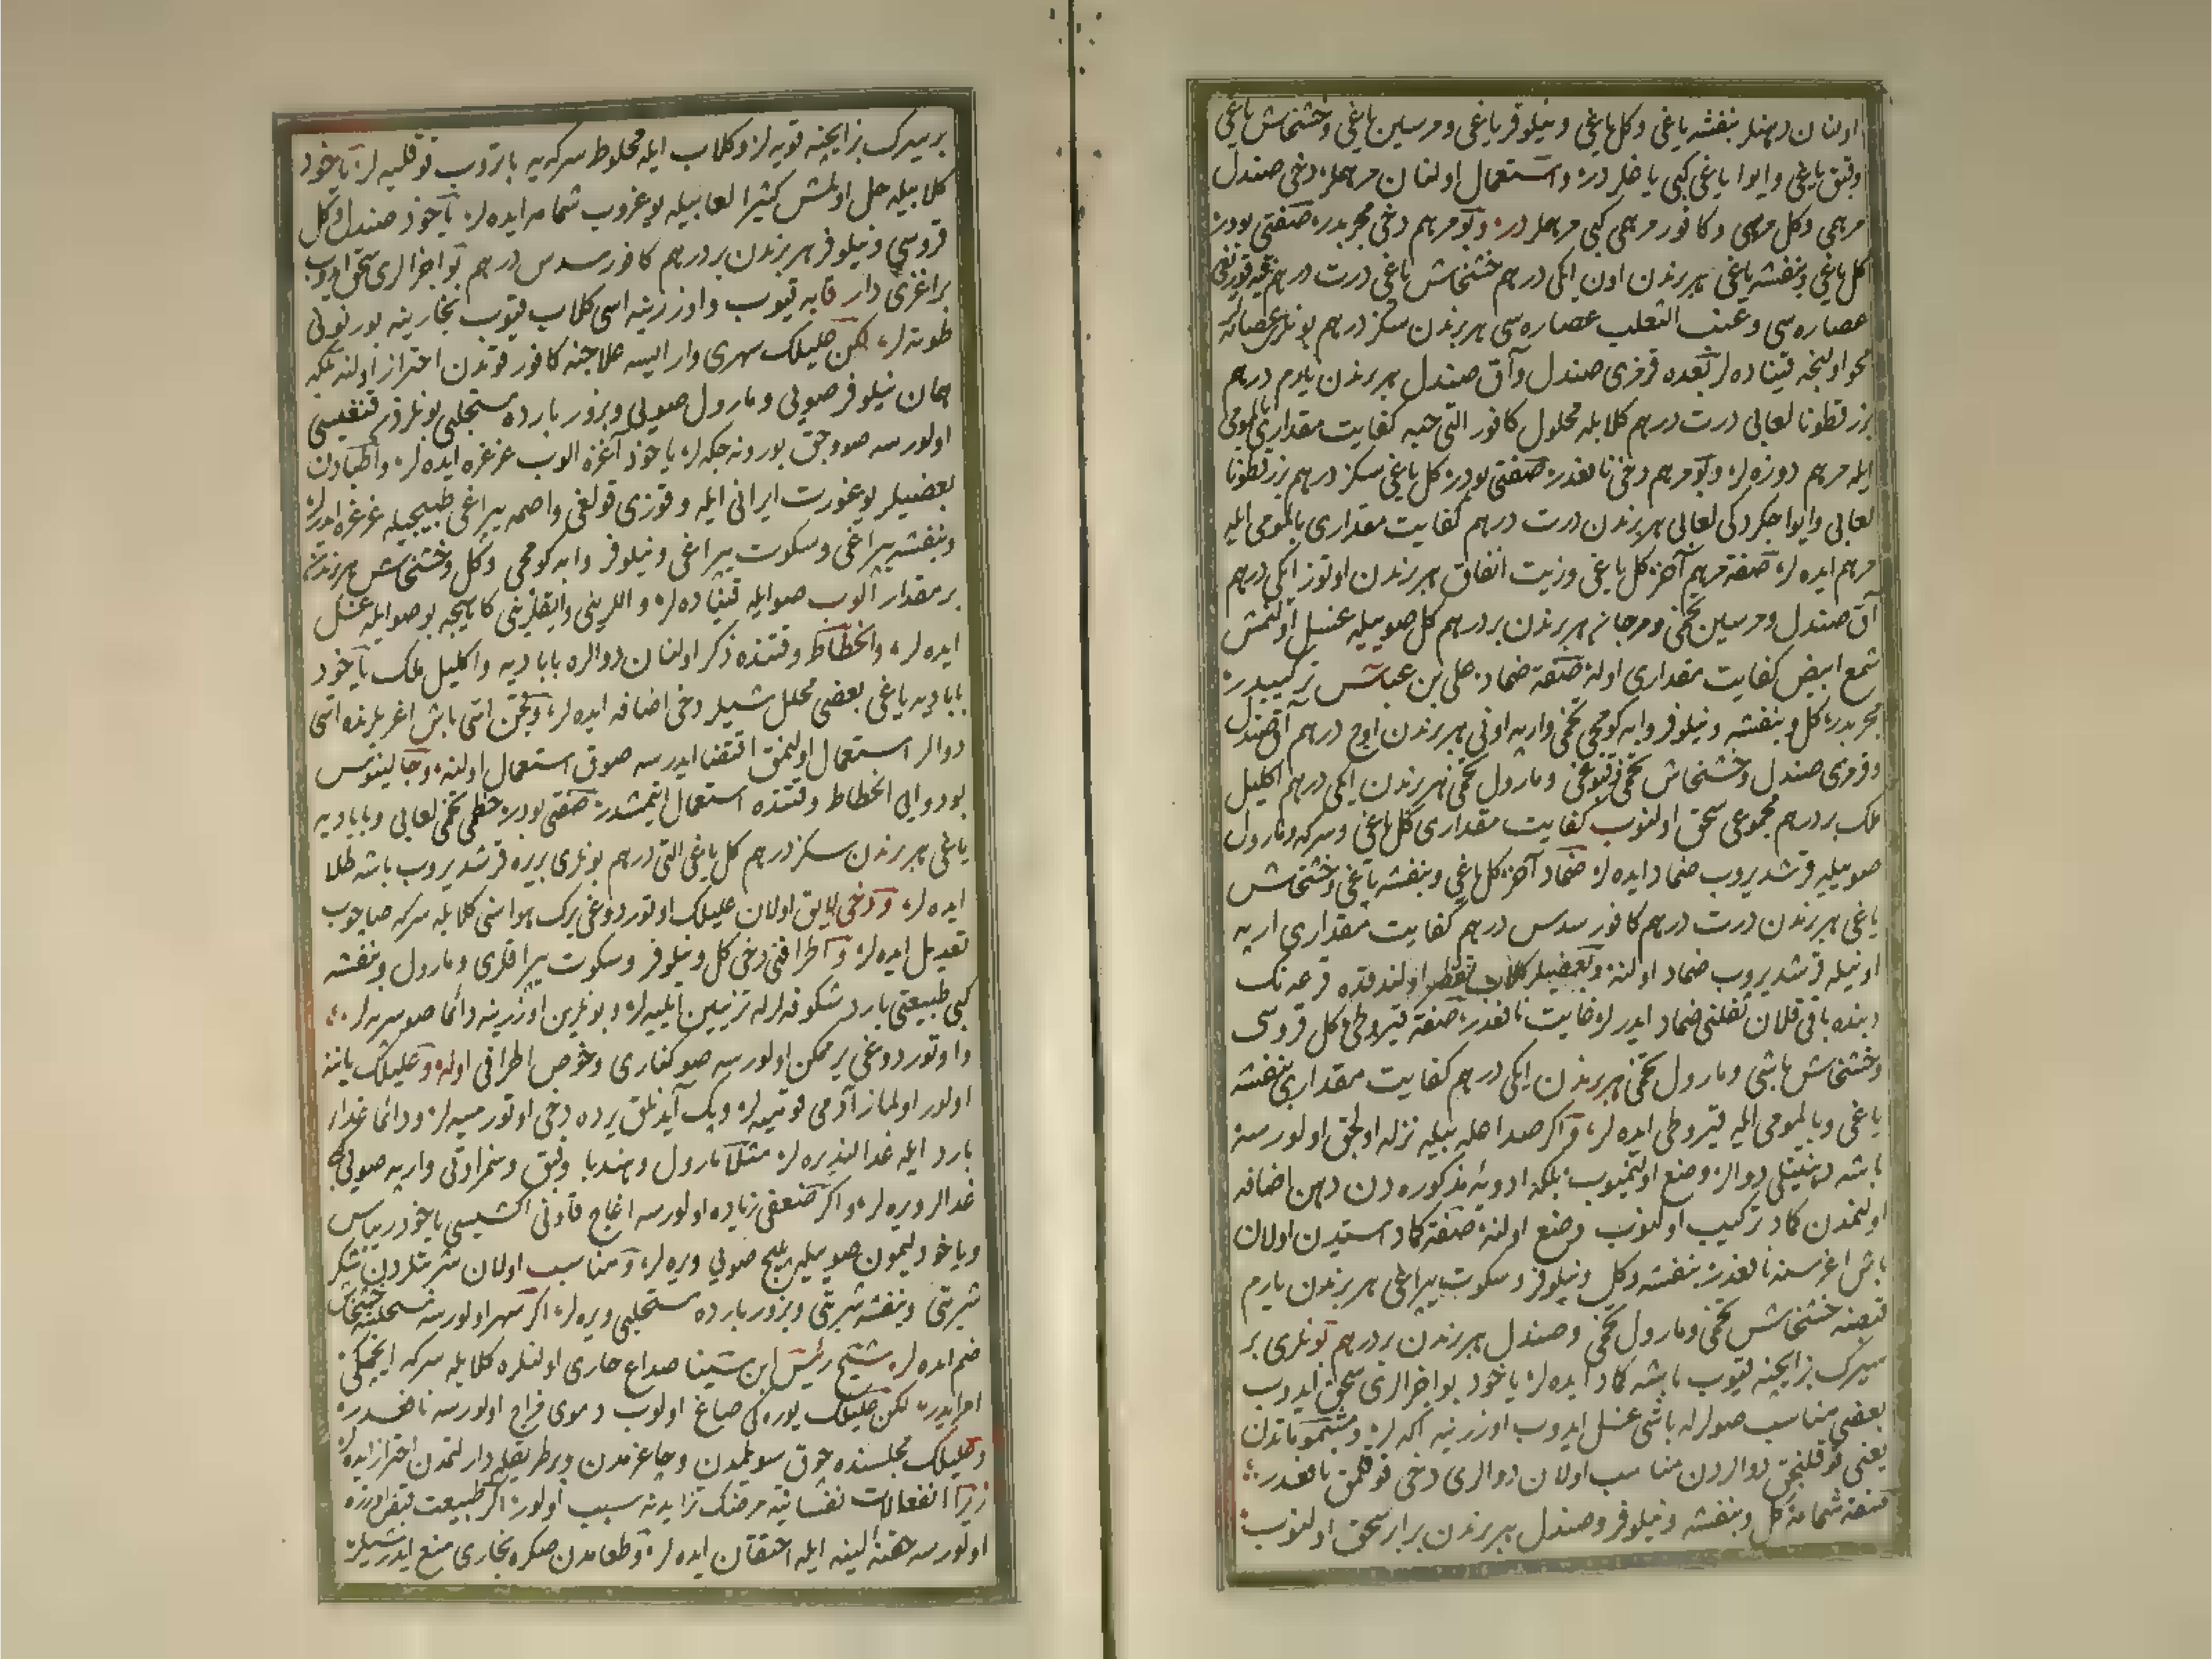 اولنان دهنلر بنفشه یاغی وکل یاغی ونیلوفر یاغی ومرسین یاغی وخشخاش یاغی
وقبق یاغی وایوا یاغی کبی یاغلردر واستعمال اولنان مرهملر دخی صندل
مرهمی وکل مرهمی وکافور مرهمی کبی مرهملردر وبو مرهم دخی مجربدر صنعتی بودر
کل یاغی وبنفشه یاغی هر برندن اون ایکی درهم خشخاش یاغی درت درهم
عصاره سی وعنب الثعلب عصاره سی هر برندن سکز درهم بونلری عصاره لر
محو اولنجه قینا ده لر بعده قرمزی صندل وآق صندل هر برندن یارم درهم
بزر قطونا لعابی درت درهم کلابله محلول کافور التی حبه کفایت مقداری بالمومی
ایله مرهم دوزه لر وبو مرهم دخی نافعدر صنعتی بودر کل یاغی سکز درهم بزر قطونا
لعابی وایوا چکردکی لعابی هر برندن درت درهم کفایت مقداری بالمومی ایله
مرهم ایده لر صنعة مرهم آخر کل یاغی وزیت انفاق هر برندن اوتوز ایکی درهم
آق صندل ومرسین تخمی ومرجان هر برندن بر درهم کل صوییله غسل اولنمش
شمع ابیض کفایت مقداری اوله صنعة ضماد علی بن عباس ترکیبیدر
مجربدر کل وبنفشه ونیلوفر وابه کومجی تخمی وارپه اونی هر برندن اوج درهم آق صندل
وقرمزی صندل وخشخاش تخمی وقبوغی ومارول تخمی هر برندن ایکی درهم اکلیل
ملک بر درهم مجموعی سحق اولنوب کفایت مقداری کل یاغی وسرکه ومارول
صوییله قرشدیروب ضماد ایده لر ضماد آخر کل یاغی وبنفشه یاغی وخشخاش
یاغی هر برندن درت درهم کافور سدس درهم کفایت مقداری ارپه
اونیله قرشدیروب ضماد اولنه وبعضیلر کلاب تقطیر اولندقده قرعه نک
دبنده باقی قلان ثفلنی ضماد ایدر لر غایت نافعدر صنعة قیروطی کل قروسی
وخشخاش باشی ومارول تخمی هر برندن ایکی درهم کفایت مقداری بنفشه
یاغی وبالمومی ایله قیروطی ایده لر واکر صداع سببیله نزله اولجق اولورسه
باشه دهنیتلی دوالر وضع اولنمیوب بلکه ادویۀ مذکوره دن دهن اضافه
اولنمدن کماد ترکیب اولنوب وضع اولنه صنعة کماد استیدن اولان
باش اغرسنه نافعدر بنفشه وکل ونیلوفر وسکوت یپراغی هر برندن یارم
قبضه خشخاش تخمی ومارول تخمی وصندل هر برندن بر درهم بونلری بر
سیرک بز ایچنه قیوب باشه کماد ایده لر یاخود بو اجزالری سحق ایدوب
بعضی مناسب صولرله باشی غسل ایدوب اوزرینه اکه لر ومشموماتدن
یعنی قوقلنجق دوالردن مناسب اولان دوالری دخی قوقلمق نافعدر
صنعة شمامه کل وبنفشه ونیلوفر وصندل هر برندن برابر سحق اولنوب
بر سیرک بز ایچنه قویه لر وکلاب ایله مخلوط سرکه یه باتروب قوقلیه لر یاخود
کلابیله حل اولمش کثیرا لعابیله یوغروب شمامه ایده لر یاخود صندل وکل
قروسی ونیلوفر هر برندن بر درهم کافور سدس درهم بو اجزالری سحق ایدوب
بر اغزی دار قابه قیوب واوزرینه اسی کلاب قیوب بخارینه بورنونی
طوته لر لکن علیلک سهری وار ایسه علاجنه کافور قوتدن احتراز اولنه بلکه
همان نیلوفر صویی ومارول صویی وبزور بارده مستحلبی بونلردر قنغیسی
اولورسه صووجق بورونه چکه لر یاخود آغزه الوب غرغره ایده لر واطبادن
بعضیلر یوغورت ایرانی ایله وقوزی قولغی واصمه یپراغی طبیخیله غرغره ایدرلر
وبنفشه یپراغی وسکوت یپراغی ونیلوفر وابه کومجی وکل وخشخاش هر برندن
بر مقدار الوب صوایله قیناده لر واللرینی وایقلرینی کاهیجه بو صوایله غسل
ایده لر وانحطاط وقتنده ذکر اولنان دوالره بابادیه واکلیل ملک یاخود
بابادیه یاغی بعضی محلل شیلر دخی اضافه ایده لر وبحق اسی باش اغریلرنده اسی
دوالر استعمال اولنمق اقتضا ایدرسه صوق استعمال اولنه وجالینوس
بو دوایی انحطاط وقتنده استعمال ایتمشدر صنعتی بودر خطمی تخمی لعابی وبابادیه
یاغی هر برندن سکز درهم کل یاغی التی درهم بونلری بر یره قرشدیروب باشه طلا
ایده لر ودخی لایق اولان علیلک اوتوردوغی یرک هواسنی کلابله سرکه صاچوب
تعدیل ایده لر واطرافنی دخی کل ونیلوفر وسکوت یپراقلری ومارول وبنفشه
کبی طبیعتی بارد شکوفه لرله تزیین ایلیه لر وبونلرین اوزرینه دائما صو سپه لر
واوتوردوغی یر ممکن اولورسه صو کناری وحوض اطرافی اوله وعلیلک یاننه
اولور اولماز آدمی قویمیه لر وپک آیدنلق یرده دخی اوتورمیه لر ودائما غدا
بارد ایله غدالندیره لر مثلا مارول وهندبا وقبق وسنراوتی وارپه صویی کبی
غدالر ویره لر واکر ضعفی زیاده اولورسه اغاج قاونی اکشیسی یاخود ریباس
ویاخود لیمون صوییله پلیج صویی ویره لر ومناسب اولان شربتلردن شکر
شربتی وبنفشه شربتی وبزور بارده مستحلبی ویره لر اکر سهر اولورسه مستحلبنه خشخاش
ضم ایده لر شیخ رئیس ابن سینا صداع حاری اولنلره کلابله سرکه ایچمکی
امر ایدر لکن علیلک یوره کی صاغ اولوب دموی مزاج اولورسه نافعدر
وعلیلک مجلسنده چوق سویلمدن وچاغرمدن وبر طریقله دارلتمدن احتراز ایده لر
زیرا انفعالات نفسانیه مرضک تزایدنه سبب اولور اکر طبیعت قبض اوزره
اولورسه حقنۀ لینه ایله احتقان ایده لر وطعامدن صکره بخاری منع ایدر شیلر